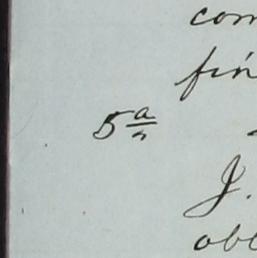 com
fin
5ª
J.
obl